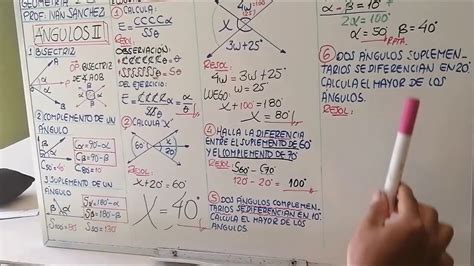 GEOMETRIA
PROF: IVÁN SÁNCHEZ
ÁNGULOS II
1 BISECTRIZ
OP: BISECTRIZ
DE ∠AOB
A
P
B
2 COMPLEMENTO DE UN
ÁNGULO
Cα = 90°-α
Cβ = 90°-β
3 SUPLEMENTO DE UN
ANGULO
Sα = 180°-α
Sβ = 180°-β
S100 = 80°
E = CCCC α
SSS α
RESOL:
OBSERVACIÓN:
DEL EJERCICIO:
② CALCULA "X"
60°
X
20°
RESOL:
X+20° = 60°
X = 40°
4ω
X
3ω + 25°
RESOL:
4ω = 3ω + 25°
ω = 25°
LUEGO:
X + 100 = 180°
X = 80°
④ HALLA LA DIFERENCIA
ENTRE EL SUPLEMENTO DE 60°
Y EL COMPLEMENTO DE 70°
RESOL:
S60° - C70°
120° - 20° = 100°
⑤ DOS ÁNGULOS COMPLEMEN-
TARIOS SE DIFERENCIAN EN 10°
CALCULA EL MAYOR DE LOS
ANGULOS.
α - β = 10°
2α = 100°
α = 50°
β = 40°
RPTA.
⑥ DOS ÁNGULOS SUPLEMEN-
TARIOS SE DIFERENCIAN EN 20°
CALCULA EL MAYOR DE LOS
ANGULOS.
RESOL: